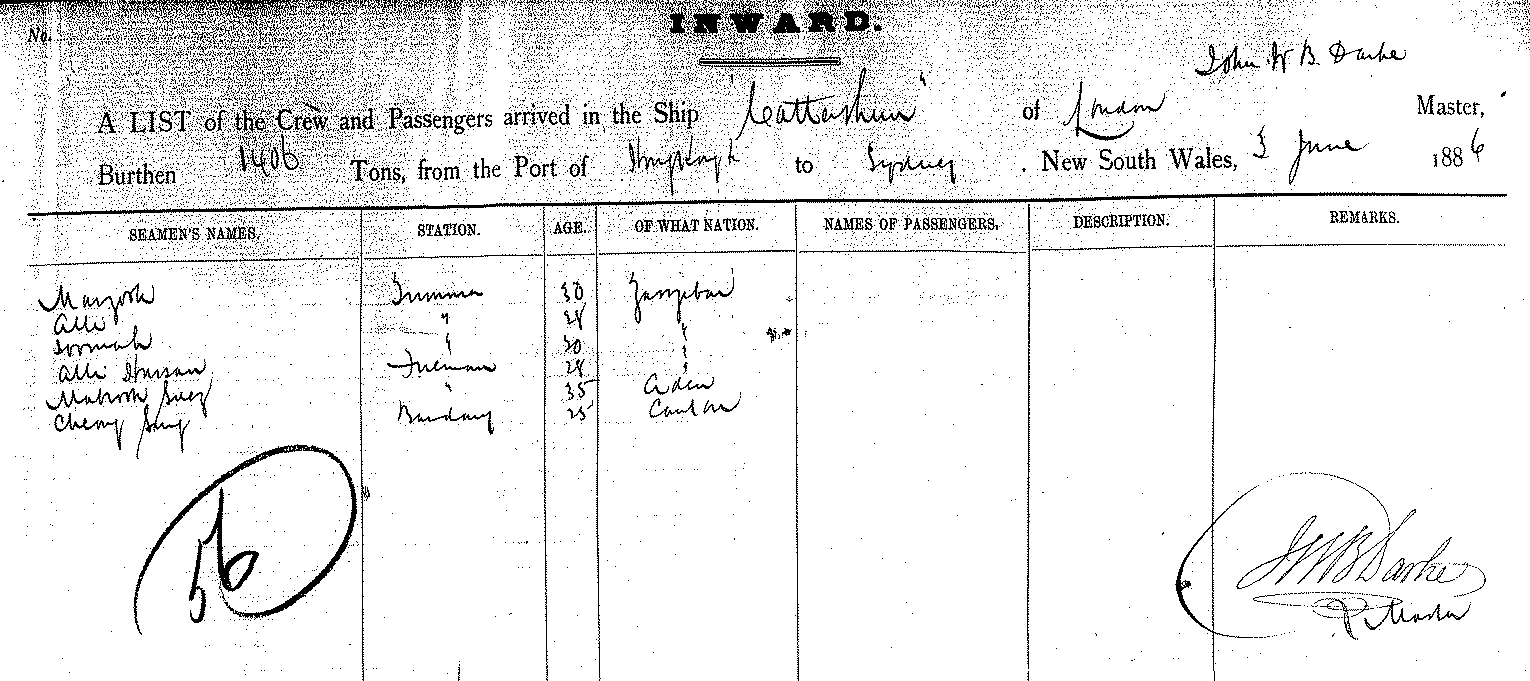 No.
INWARD.
John W B. Darke
A LIST of the Crew and Passengers arrived in the Ship "Catterthun" of London Master,
Burthen 1406 Tons, from the Port of Hongkong to Sydney. New South Wales, 3 June 1886
SEAMEN'S NAMES. STATION. AGE. OF WHAT NATION. NAMES OF PASSENGERS. DESCRIPTION. REMARKS.
30 Zanzibar
Alli " 28 "
" 30 "
Alli Hassan Fireman 28 "
" 35 Aden
25 Canton
56
JWB Darke
Master